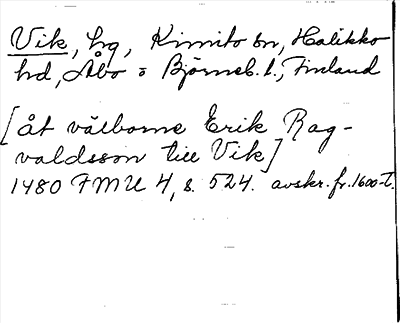 Vik, hg, Kimito sn, Halikko
hd, Åbo o Björneb. l., Finland
[åt välborne Erik Rag-
valdsson till Vik]
1480 FMU 4, s. 524. avskr. fr. 1600-t.